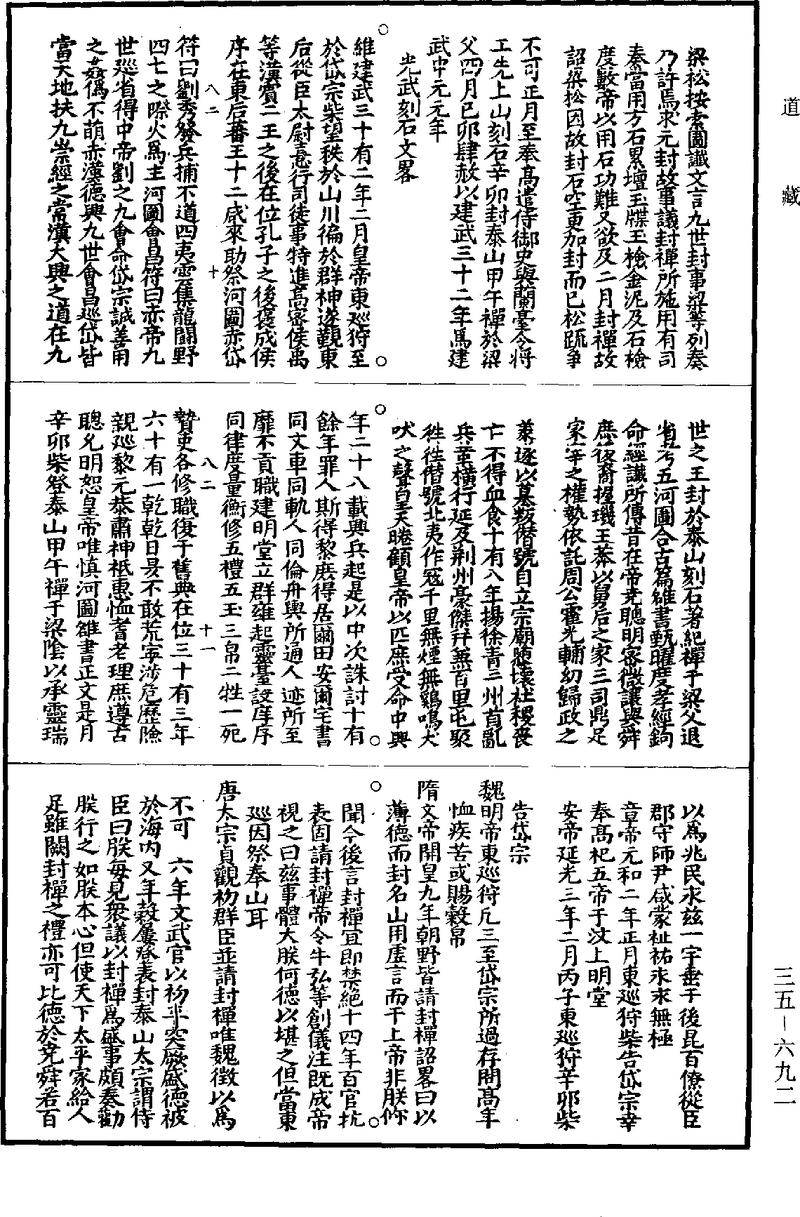 道藏
梁松按索圖讖文言九世封事梁等列奏
乃許焉求元封故事議封禪所施用有司
奏當用方石累壇玉牒玉檢金泥及石檢
度數帝以用石功難又欲及二月封禪故
詔梁松因故封石空更加封而已松疏爭
不可正月至奉高遣侍御史與蘭臺令將
工先上山刻石辛卯封泰山甲午禪於梁
父四月己卯肆赦以建武三十二年為建
武中元元年
光武刻石文畧
維建武三十有二年二月皇帝東巡狩至
於岱宗柴望秩於山川徧於群神遂覲東
后從臣太尉憙行司徒事特進高密侯禹
等漢賓二王之後在位孔子之後褒成侯
序在東后蕃王十二咸來助祭河圖赤岱
八二
十
符曰劉秀發兵捕不道四夷雲集龍鬪野
四七之際火為主河圖會昌符曰赤帝九
世巡省得中帝劉之九會命岱宗誠善用
之姦偽不萌赤漢德興九世會昌巡岱皆
當天地扶九崇經之常漢大興之道在九
世之王封於泰山刻石著紀禪于梁父退
省考五河圖合古篇雒書甄曜度孝經鉤
命經讖所傳昔在帝堯聰明密微讓與舜
庶後裔握璣王莽以舅后之家三司鼎足
冢宰之權勢依託周公霍光輔幼歸政之
義逐以篡叛僭號自立宗廟隳壞社稷喪
亡不得血食十有八年揚徐青三州首亂
兵革橫行延及荆州豪傑幷兼百里屯聚
徃徃僭號北夷作寇千里無煙無鷄鳴犬
吠之聲皇天睠顧皇帝以匹庶受命中興
年二十八載興兵起是以中次誅討十有
餘年罪人斯得黎庶得居爾田安爾宅書
同文車同軌人同倫舟輿所通人迹所至
靡不貢職建明堂立群雍起靈臺設庠序
同律度量衡修五禮五玉三帛二牲一死
八二
十一
贄吏各修職復于舊典在位三十有三年
六十有一乾乾日昃不敢荒寧涉危歷險
親巡黎元恭肅神祇惠恤耆老理庶遵古
聰允明恕皇帝唯慎河圖雒書正文是月
辛卯柴登泰山甲午禪于梁陰以承靈瑞
以為兆民永茲一宇垂于後昆百僚從臣
郡守師尹咸蒙祉祐永永無極
章帝元和二年正月東巡狩柴告岱宗幸
奉高祀五帝于汶上明堂
安帝延光三年二月丙子東巡狩辛卯柴
告岱宗
魏明帝東巡狩凡三至岱宗所過存問高年
恤疾苦或賜穀帛
隋文帝開皇九年朝野皆請封禪詔畧曰以
薄德而封名山用虛言而干上帝非朕攸
聞今後言封禪宜即禁絕十四年百官抗
表固請封禪帝令牛弘等創儀注既成帝
視之曰茲事體大朕何德以堪之但當東
巡因祭奉山耳
唐太宗貞觀初群臣並請封禪唯魏徵以為
不可 六年文武官以初平突厥威德被
於海内又年穀屢登表封泰山太宗謂侍
臣曰朕每見衆議以封禪為盛事頗奏勸
朕行之如朕本心但使天下太平家給人
足雖闕封禪之禮亦可比德於堯舜若百
三五-六九二